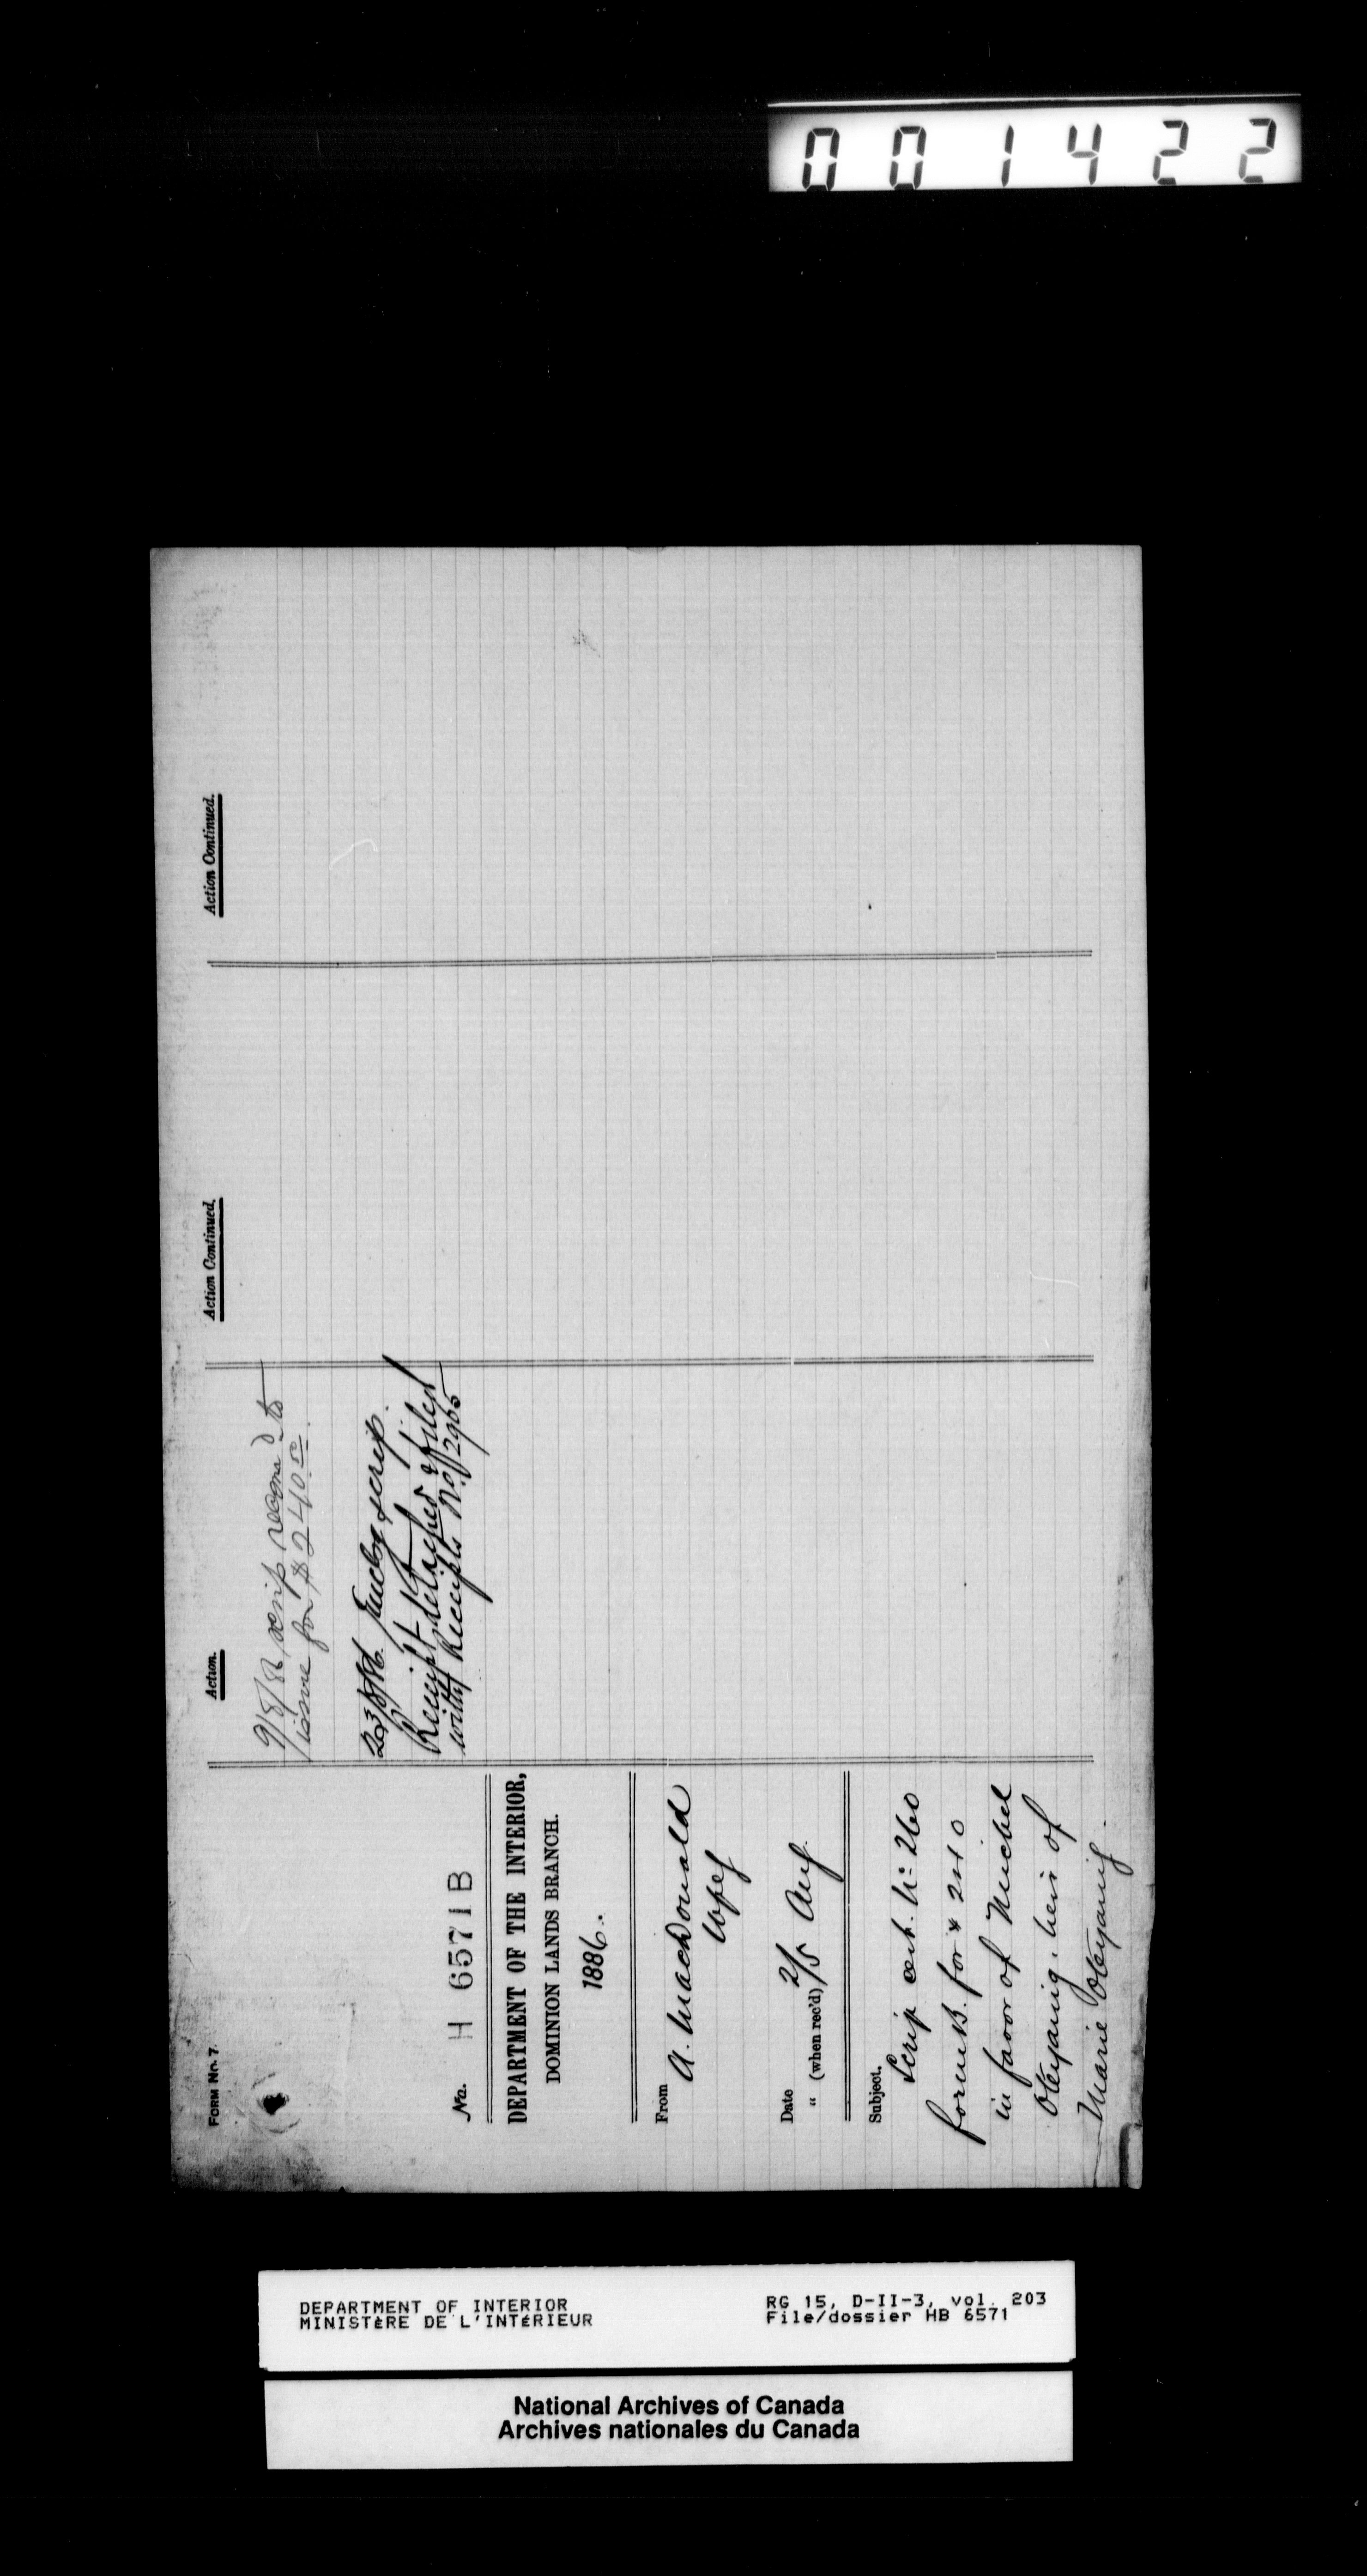 001422
FORM No. 7
No. H 6571 B
DEPARTMENT OF THE INTERIOR,
DOMINION LANDS BRANCH.
1886.
From A. MacDonald
Wpeg
Date 2/5 Aug
" (when rec'd)
Subject.
Scrip cert. No 260
form B. for $ 240
in favor of Michel
heir of
Marie
Action.
9/8/86 scrip recomd to
issue for $240.00
23/8/86. scrip.
Receipt detached & filed
with Receipts No 2965
Action Continued.
Action Continued.
DEPARTMENT OF INTERIOR
MINISTÈRE DE L'INTÉRIEUR
RG 15, D-II-3, vol. 203
File/dossier HB 6571
National Archives of Canada
Archives nationales du Canada